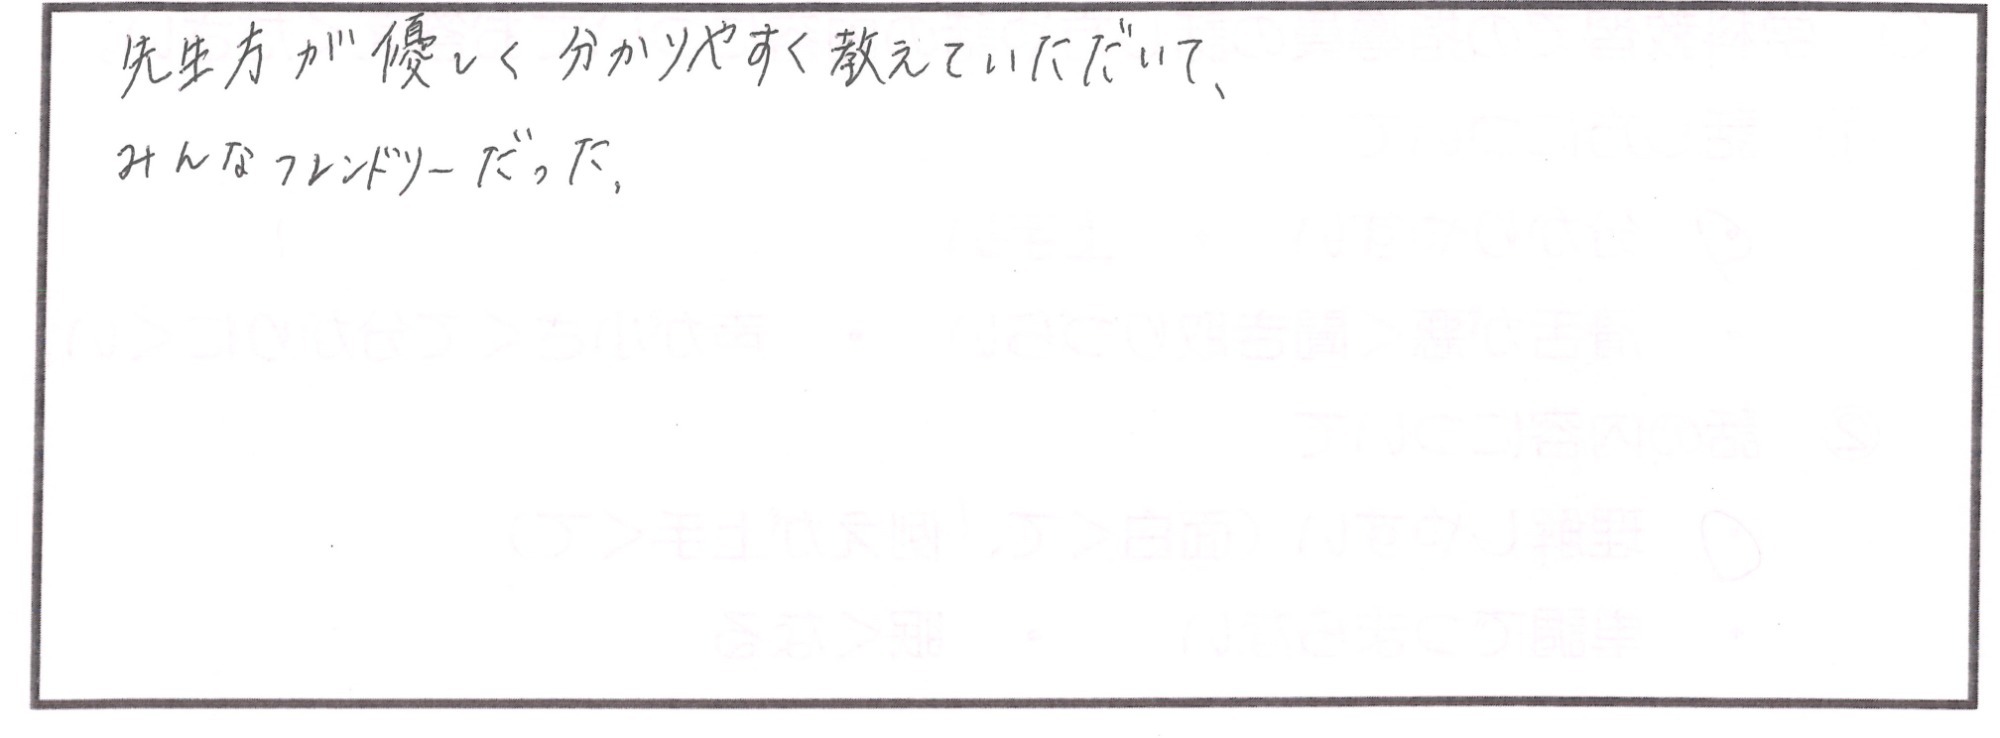 先生方が優しく分かりやすく教えていただいて、
みんなフレンドリーだった。